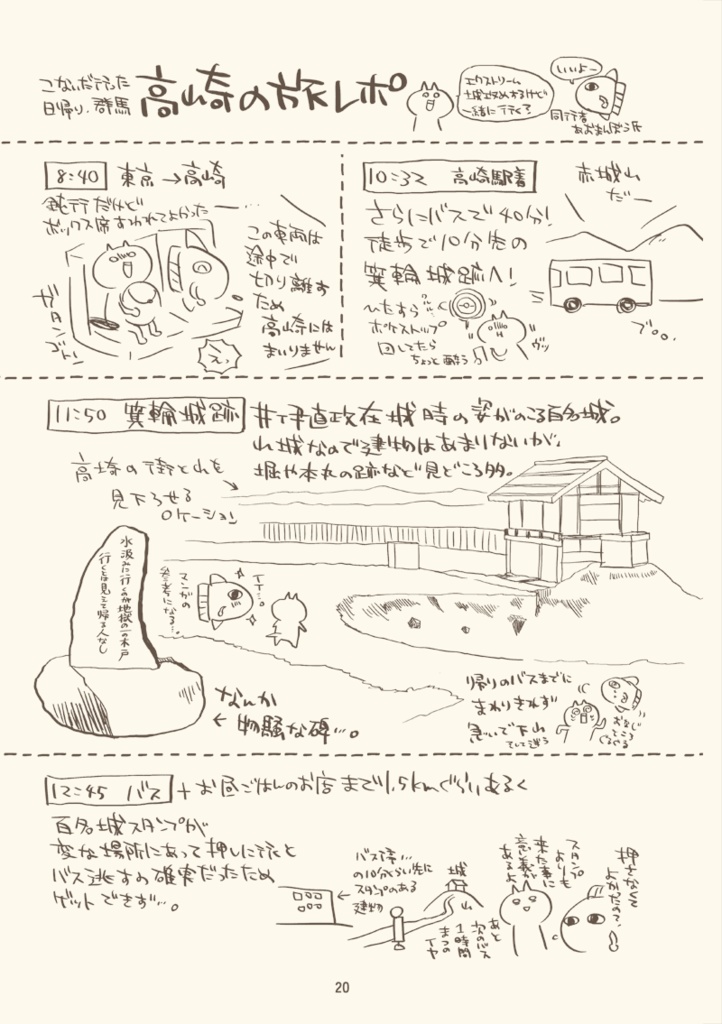 こないだ行った
日帰り、群馬
高崎の旅レポ
エクストリーム
城攻めするけど
一緒に行く?
いいよー
同行者
あおまんぼう氏
8:40 東京→高崎
鈍行だけど
ボックス席すわれてよかったー…
ガタン
ゴトン
この車両は
途中で
切り離す
ため
高崎には
まいりません
えっ
10:32 高崎駅着
赤城山
だー
さらにバスで40分!
徒歩で10分先の
箕輪城跡へ!
ひたすら
ポケストップ
回してたら
ちょっと酔う
ウッ
ブ○○.
11:50 箕輪城跡
井伊直政在城時の姿がのこる百名城。
山城なので建物はあまりないが、
堀や本丸の跡など見どころ多。
高崎の街と山を
見下ろせる
ロケーション
水汲みに行くのが地獄の一の木戸
行くとは見えて帰る人なし
マンガの
参考になる…。
イイ…。
なんか
←物騒な碑…。
帰りのバスまでに
まわりきれず
急いで下山
ていて迷う
おなじ
ところ
ぐるぐる
12:45 バス
+お昼ごはんのお店まで1.5kmぐらいあるく
百名城スタンプが
変な場所にあって押しに行くと
バス逃すの確実だったため
ゲットできず…。
バス停…
の10分くらい先に
スタンプのある
建物
城
山
あと
次のバス
1時間
まつの
イヤ
スタンプ
よりも
来た事に
意義が
あるよ
押さなくて
よかったの?
20